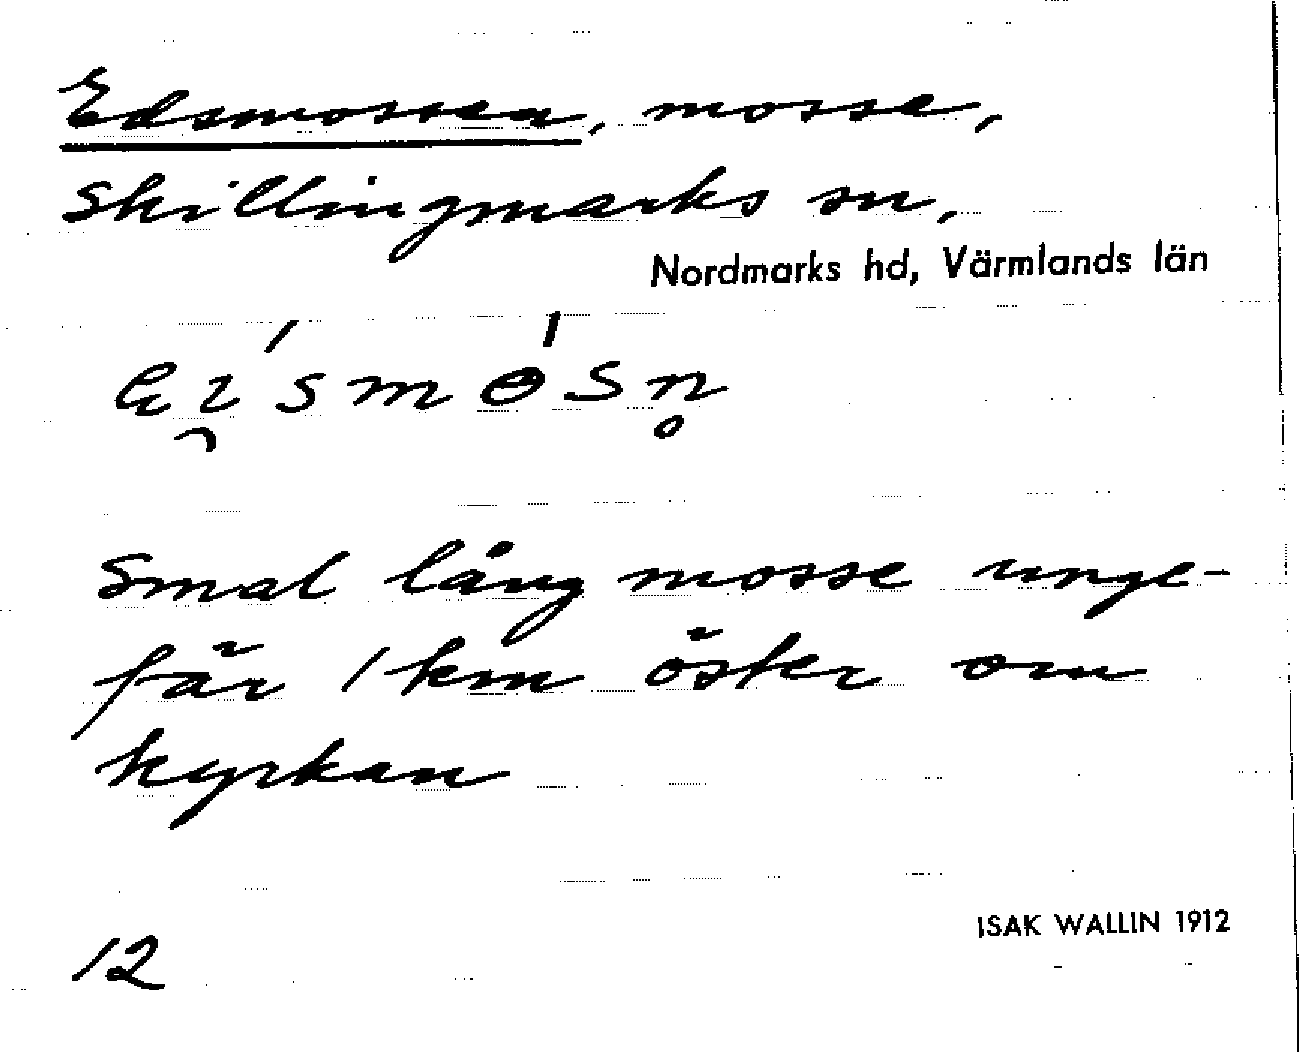 Edsmossen, mosse,
Skillingmarks sn,
Nordmarks hd, Värmlands län
Smal lång mosse unge-
fär 1 km öster om
kyrkan
ISAK WALLIN 1912
12